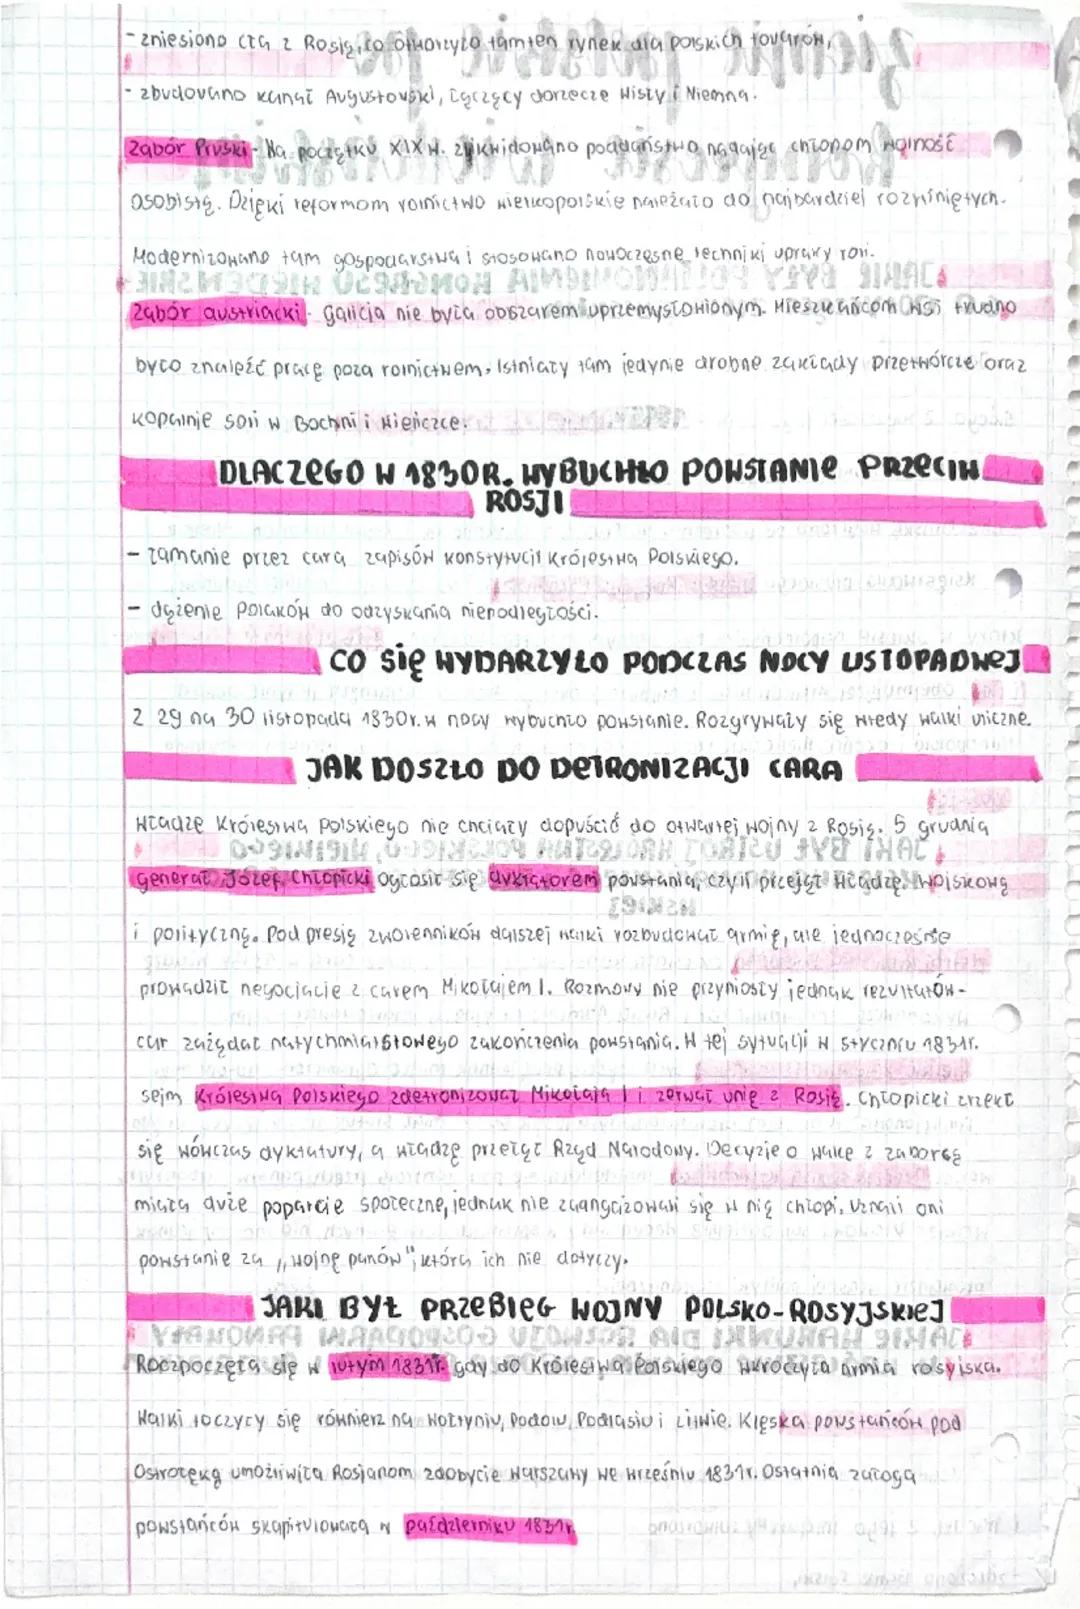 - zniesiono cła z Rosją, co otworzyło tamten rynek dla polskich towarów,
- zbudowano kanał Augustowski, łączący dorzecze Wisły i Niemna.
Zabór Pruski - Na początku XIX w. zlikwidowano poddaństwo nadając chłopom wolność
osobistą. Dzięki reformom rolnictwo wielkopolskie należało do najbardziej rozwiniętych.
Modernizowano tam gospodarstwa i stosowano nowoczesne techniki uprawy roli.
Zabór austriacki - galicja nie była obszarem uprzemysłowionym. Mieszkańcom wsi trudno
było znaleźć pracę poza rolnictwem. Istniały tam jedynie drobne zakłady przetwórcze oraz
kopalnie soli w Bochni i Wieliczce.
DLACZEGO W 1830R. WYBUCHŁO POWSTANIE PRZECIW
ROSJI
- łamanie przez cara zapisów konstytucji Królestwa Polskiego.
- dążenie Polaków do odzyskania niepodległości.
CO SIĘ WYDARZYŁO PODCZAS NOCY LISTOPADWEJ
Z 29 na 30 listopada 1830r. w nocy wybuchło powstanie. Rozgrywały się wtedy walki uliczne.
JAK DOSZŁO DO DETRONIZACJI CARA
Władze Królestwa Polskiego nie chciały dopuścić do otwartej wojny z Rosją. 5 grudnia
generał Józef Chłopicki ogłosił się dyktatorem powstania, czyli przejął władzę wojskową
i polityczną. Pod presją zwolenników dalszej walki rozbudował armię, ale jednocześnie
prowadził negocjacje z carem Mikołajem I. Rozmowy nie przyniosły jednak rezultatów -
car zażądał natychmiastowego zakończenia powstania. W tej sytuacji w styczniu 1831r.
sejm Królestwa Polskiego zdetronizował Mikołaja I i zerwał unię z Rosją. Chłopicki zrzekł
się wówczas dyktatury, a władzę przejął Rząd Narodowy. Decyzje o walce z zaborcą
miała duże poparcie społeczne, jednak nie zaangażowali się w nią chłopi. Uznali oni
powstanie za „wojnę panów", która ich nie dotyczy.
JAKI BYŁ PRZEBIEG WOJNY POLSKO-ROSYJSKIEJ
Roczpoczęła się w lutym 1831r. gdy do Królestwa Polskiego wkroczyła armia rosyjska.
Walki toczyły się również na Wołyniu, Podolu, Podlasiu i Litwie. Klęska powstańców pod
Ostrołęką umożliwiła Rosjanom zdobycie Warszawy we wrześniu 1831r. Ostatnia załoga
powstańców skapitulowała w październiku 1831r.